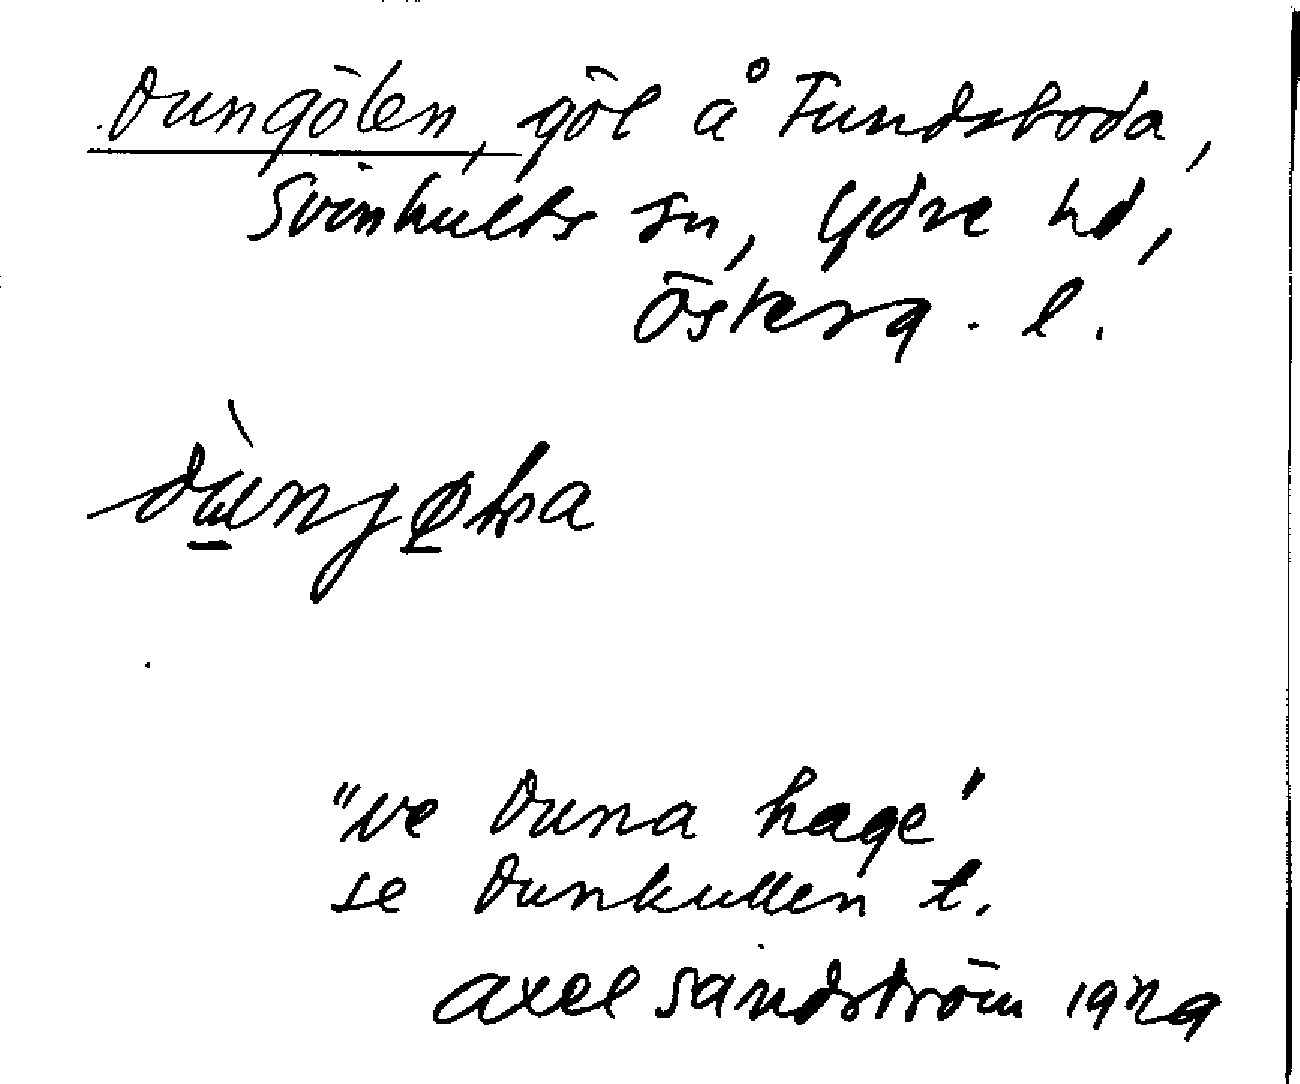 Dungölen, göl å Fundsboda,
Svinhults sn, Ydre hd,
Österg. l.
"ve Duna hage"
se Dunkullen t.
Axel Sandström 1929